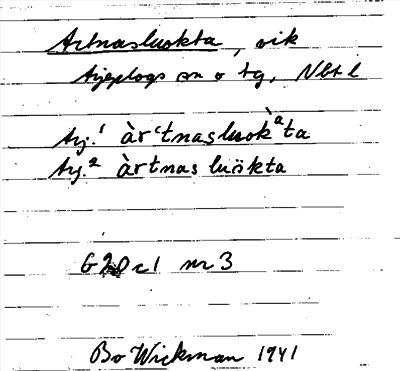 Artnasluokta, vik
Arjeplogs sn o tg, Nbt l
Arj.¹ àrʻtnasluokᵃ̀ta
Arj.² àrtnas luökta
G20c1 nr 3
Bo Wickman 1941